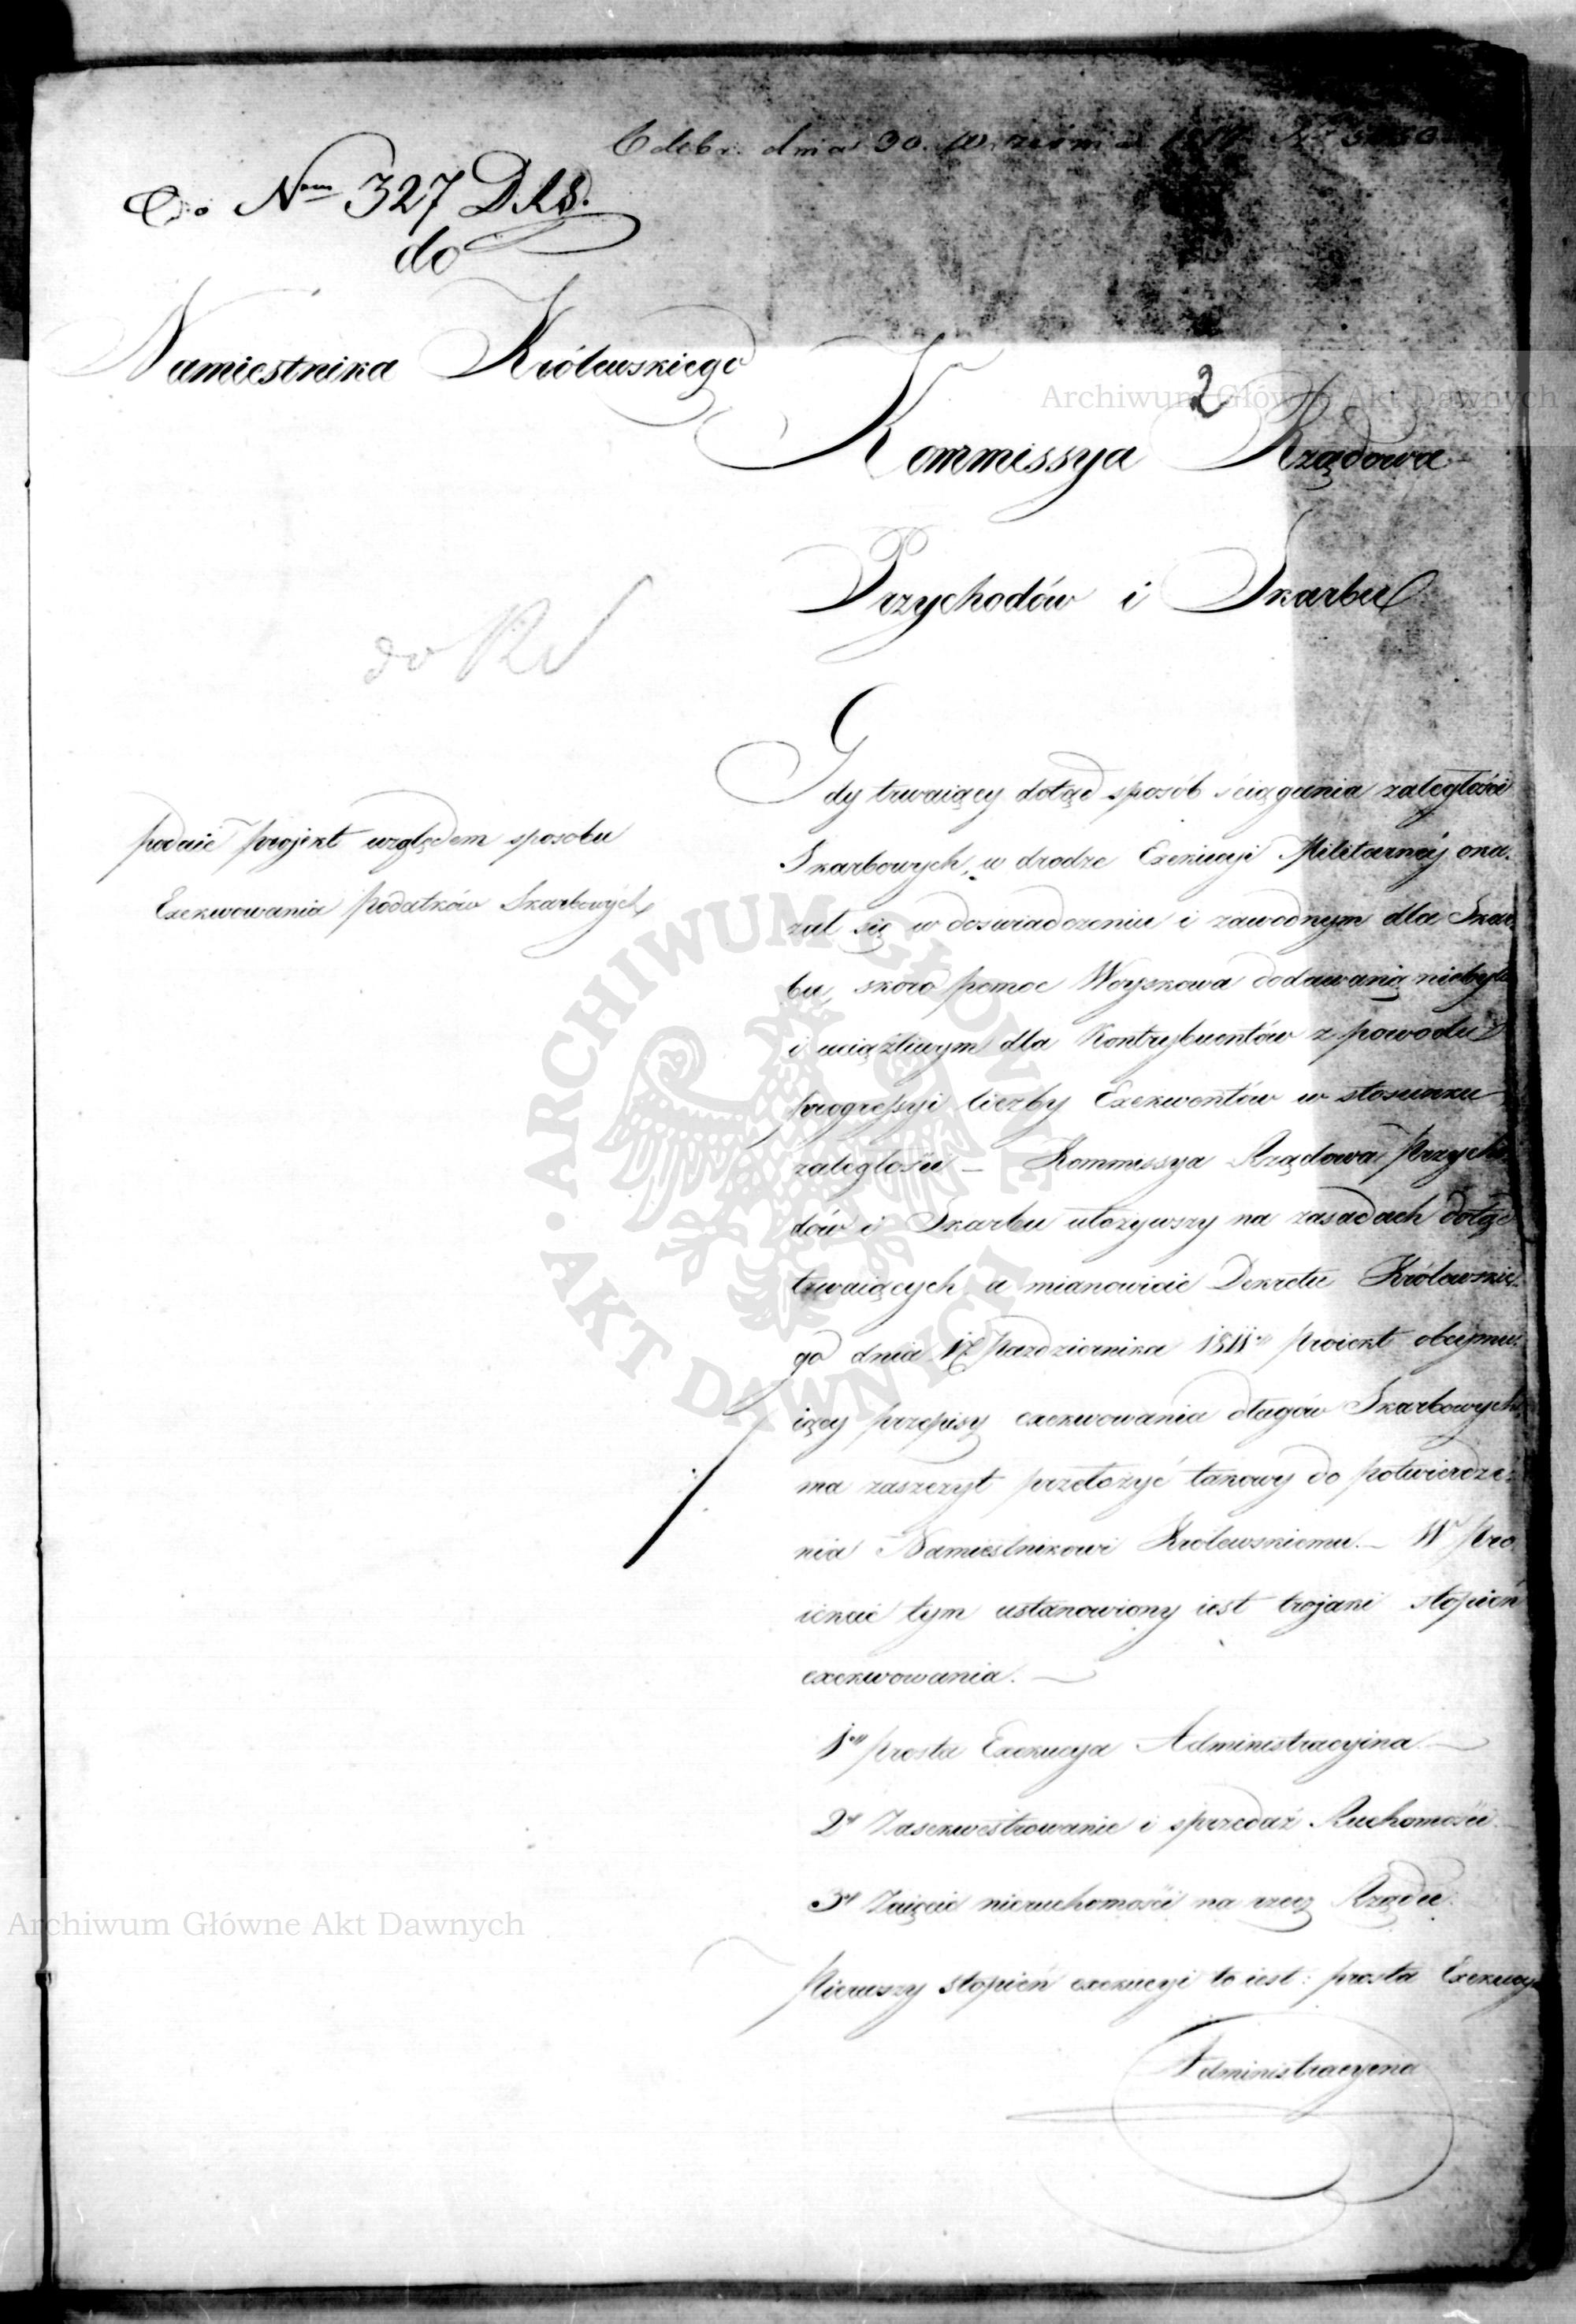 Odebr. dnia 30. Września
Do Num 327 D.K.S.
do
Namiestnika Królewskiego
2
Archiwum Główne Akt Dawnych
Kommissya Rządowa
Przychodów i Skarbu
do
podaie projekt względem sposobu
Exekwowania podatków Skarbowych
Gdy trwaiący dotąd sposób ściągania zaległości
Skarbowych, w drodze Exekucyi Militarnéj oka-
zał się w doswiadczeniu i zawodnym dla Skar-
bu, skoro pomoc Woyskowa dodawaną niebyła
i uciążliwym dla Kontrybuentów z powodu
progressyi liczby Exekwentów w stosunku
zaległości – Kommissya Rządowa Przycho-
dów i Skarbu ułożywszy na zasadach dotąd
trwaiących a mianowicie Dekretu Królewskie-
go dnia Października 1811o proiekt obeymu-
iący przepisy exekwowania długów Skarbowych,
ma zaszczyt przełożyć takowy do potwierdze-
nia Namiestnikowi Królewskiemu. – W Pro-
iekcie tym ustanowiony iest trojaki stopień
exekwowania. —
1o prosta Exekucya Administracyina —
2o Zasekwestrowanie i sprzedaż Ruchomości
3o Zaięcie nieruchomości na rzecz Rządu.
Pierwszy stopień exekucyi to iest: prosta Exekucya
Administracyina
ARCHIWUM GŁÓWNE AKT DAWNYCH
Archiwum Główne Akt Dawnych